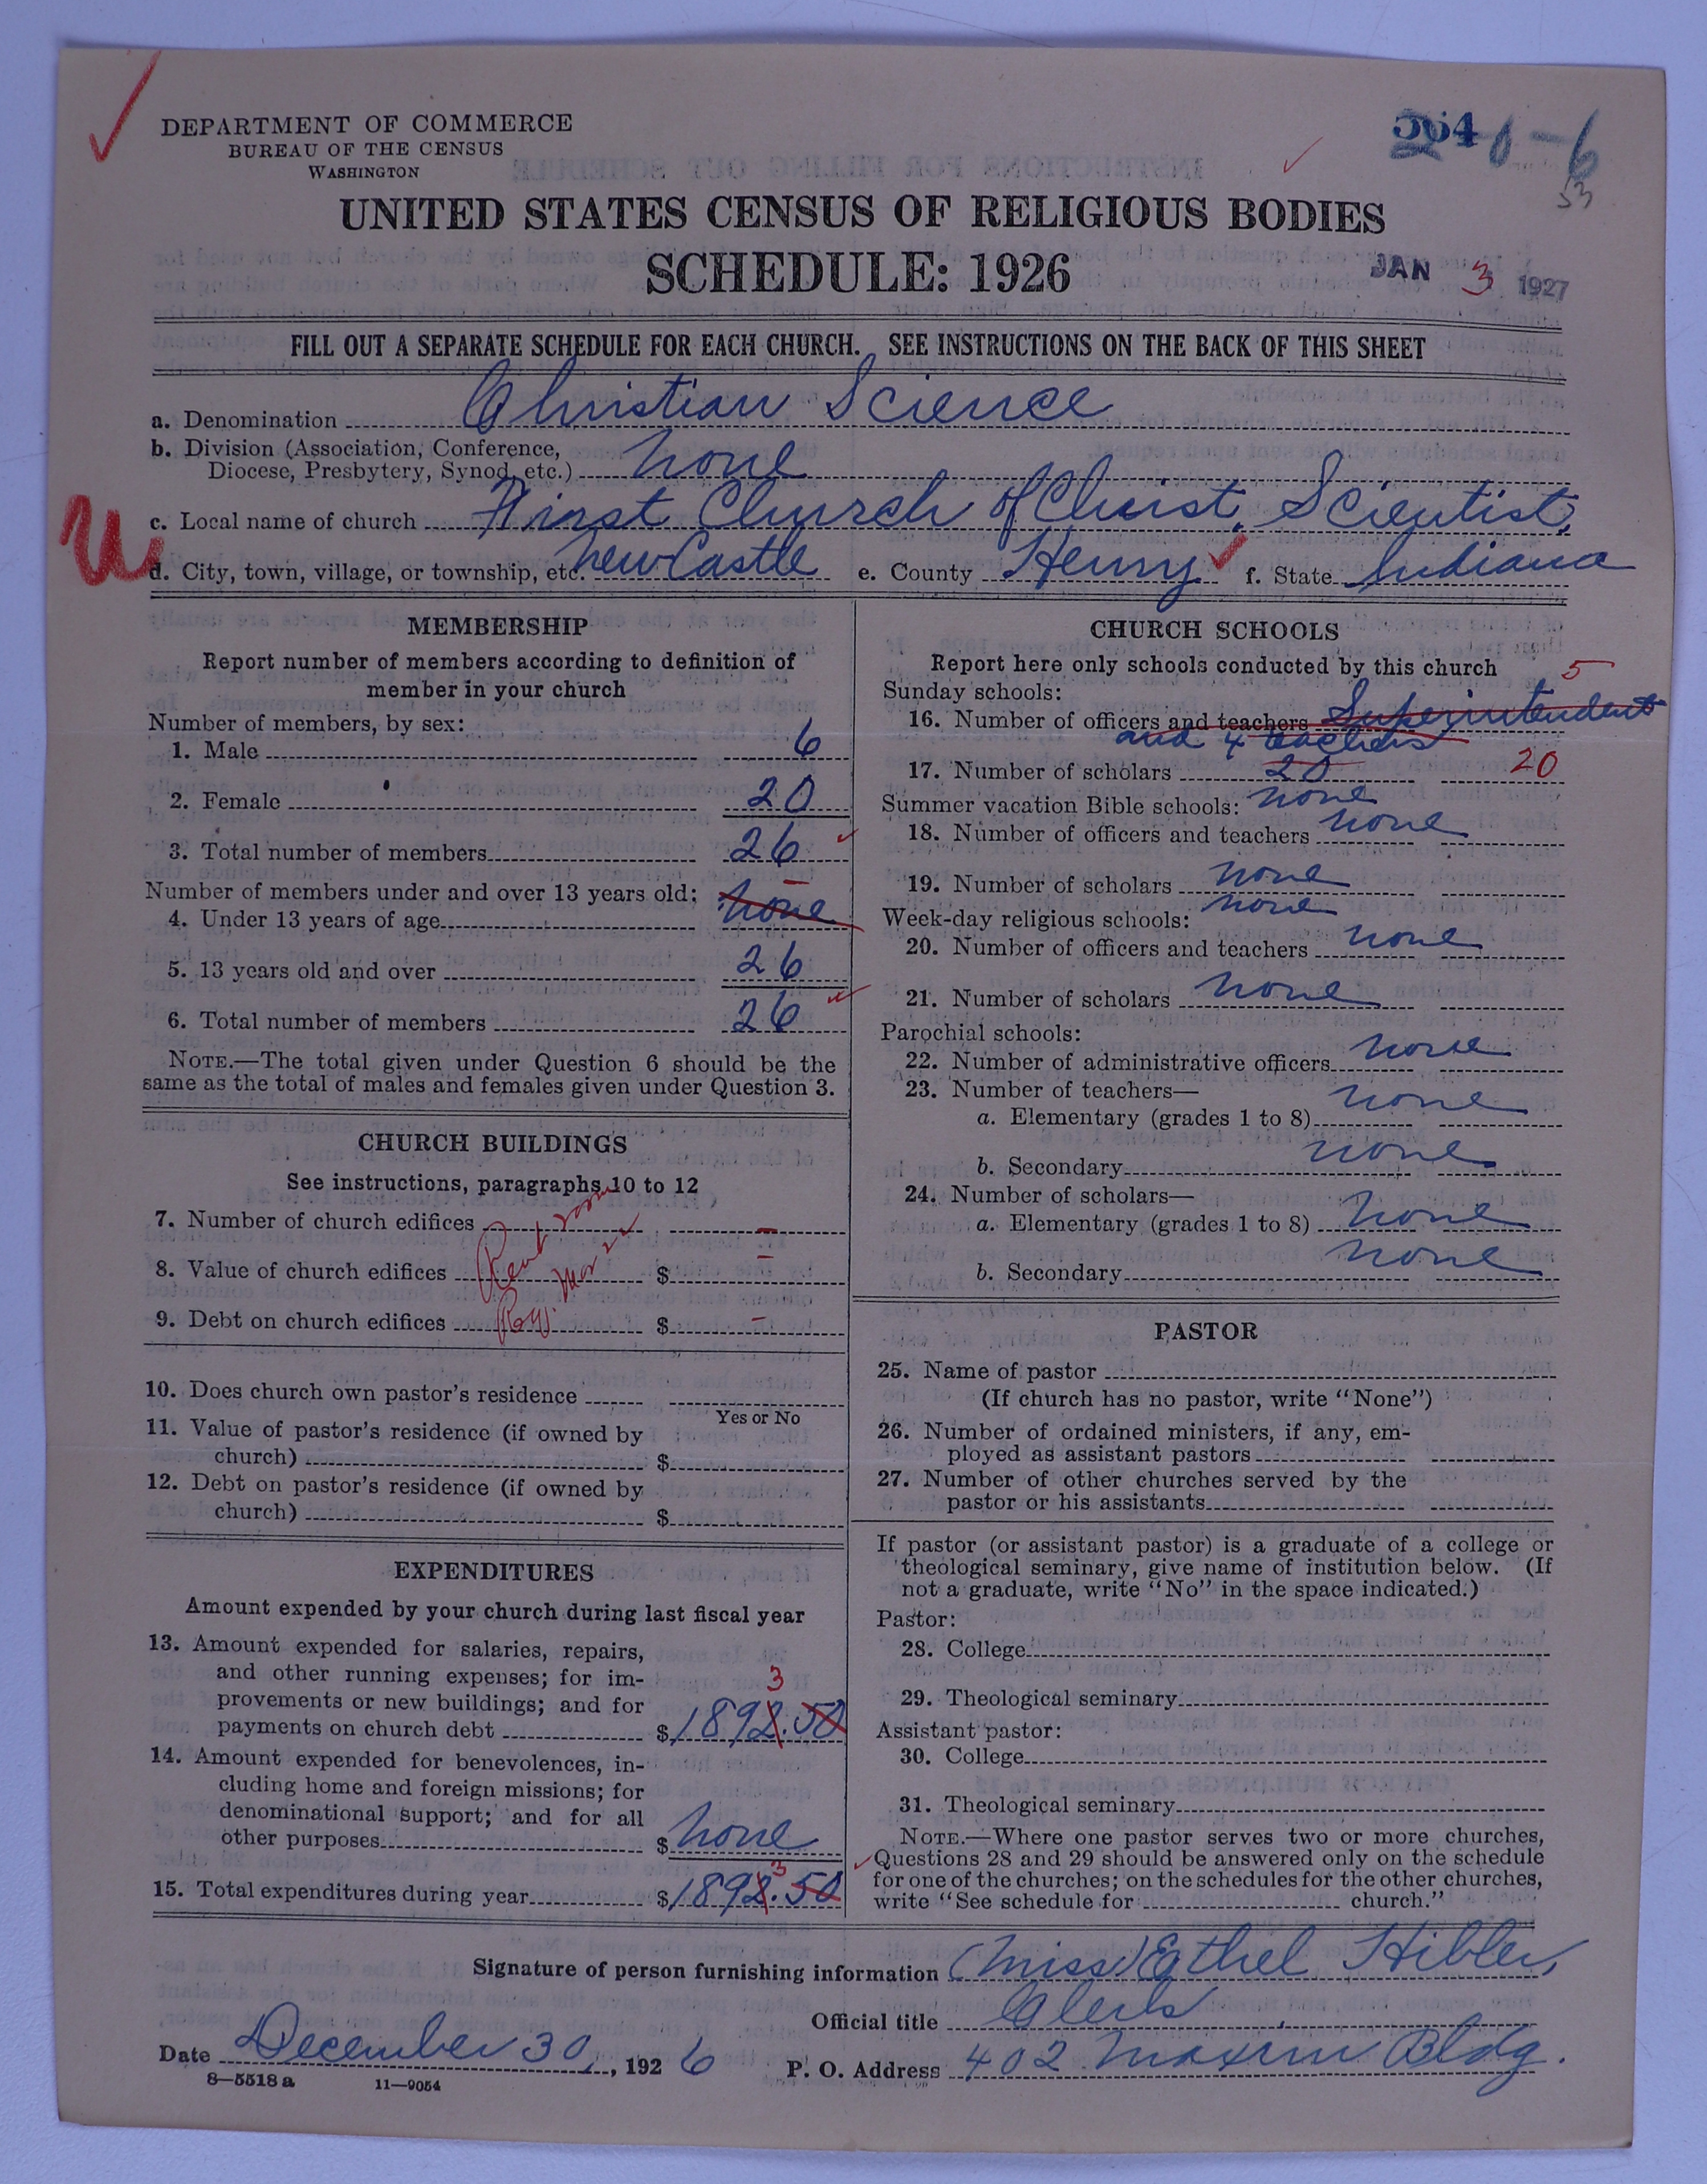 DEPARTMENT OF COMMERCE
BUREAU OF THE CENSUS
WASHINGTON
564
0-6
53
UNITED STATES CENSUS OF RELIGIOUS BODIES
SCHEDULE: 1926
JAN 3 1927
FILL OUT A SEPARATE SCHEDULE FOR EACH CHURCH. SEE INSTRUCTIONS ON THE BACK OF THIS SHEET
a. Denomination Christian Science
b. Division (Association, Conference,
Diocese, Presbytery, Synod, etc.) none
c. Local name of church First Church of Christ, Scientist,
d. City, town, village, or township, etc. New Castle e. County Henry f. State Indiana
MEMBERSHIP
Report number of members according to definition of
member in your church
Number of members, by sex:
1. Male 6
2. Female 20
3. Total number of members 26
Number of members under and over 13 years old:
4. Under 13 years of age none
5. 13 years old and over 26
6. Total number of members 26
NOTE.—The total given under Question 6 should be the
same as the total of males and females given under Question 3.
CHURCH BUILDINGS
See instructions, paragraphs 10 to 12
7. Number of church edifices –
8. Value of church edifices $ –
9. Debt on church edifices $ –
Rent room
10. Does church own pastor's residence
Yes or No
11. Value of pastor's residence (if owned by
church) $
12. Debt on pastor's residence (if owned by
church) $
EXPENDITURES
Amount expended by your church during last fiscal year
13. Amount expended for salaries, repairs,
and other running expenses; for im-
provements or new buildings; and for
3
payments on church debt $1892.50
14. Amount expended for benevolences, in-
cluding home and foreign missions; for
denominational support; and for all
other purposes $ none
3
15. Total expenditures during year $1892.50
CHURCH SCHOOLS
Report here only schools conducted by this church
5
Sunday schools:
16. Number of officers and teachers Superintendent
and 4 teachers
17. Number of scholars 20 20
Summer vacation Bible schools: none
18. Number of officers and teachers none
19. Number of scholars none
Week-day religious schools: none
20. Number of officers and teachers none
21. Number of scholars none
Parochial schools:
22. Number of administrative officers none
23. Number of teachers—
a. Elementary (grades 1 to 8) none
b. Secondary none
24. Number of scholars—
a. Elementary (grades 1 to 8) none
b. Secondary none
PASTOR
25. Name of pastor
(If church has no pastor, write "None")
26. Number of ordained ministers, if any, em-
ployed as assistant pastors
27. Number of other churches served by the
pastor or his assistants
If pastor (or assistant pastor) is a graduate of a college or
theological seminary, give name of institution below. (If
not a graduate, write "No" in the space indicated.)
Pastor:
28. College
29. Theological seminary
Assistant pastor:
30. College
31. Theological seminary
NOTE.—Where one pastor serves two or more churches,
Questions 28 and 29 should be answered only on the schedule
for one of the churches; on the schedules for the other churches,
write "See schedule for church."
Signature of person furnishing information (Miss) Ethel Hibler,
Official title Clerk
Date December 30, 1926 P. O. Address 402 Maxim Bldg.
8—5518 a 11—9054